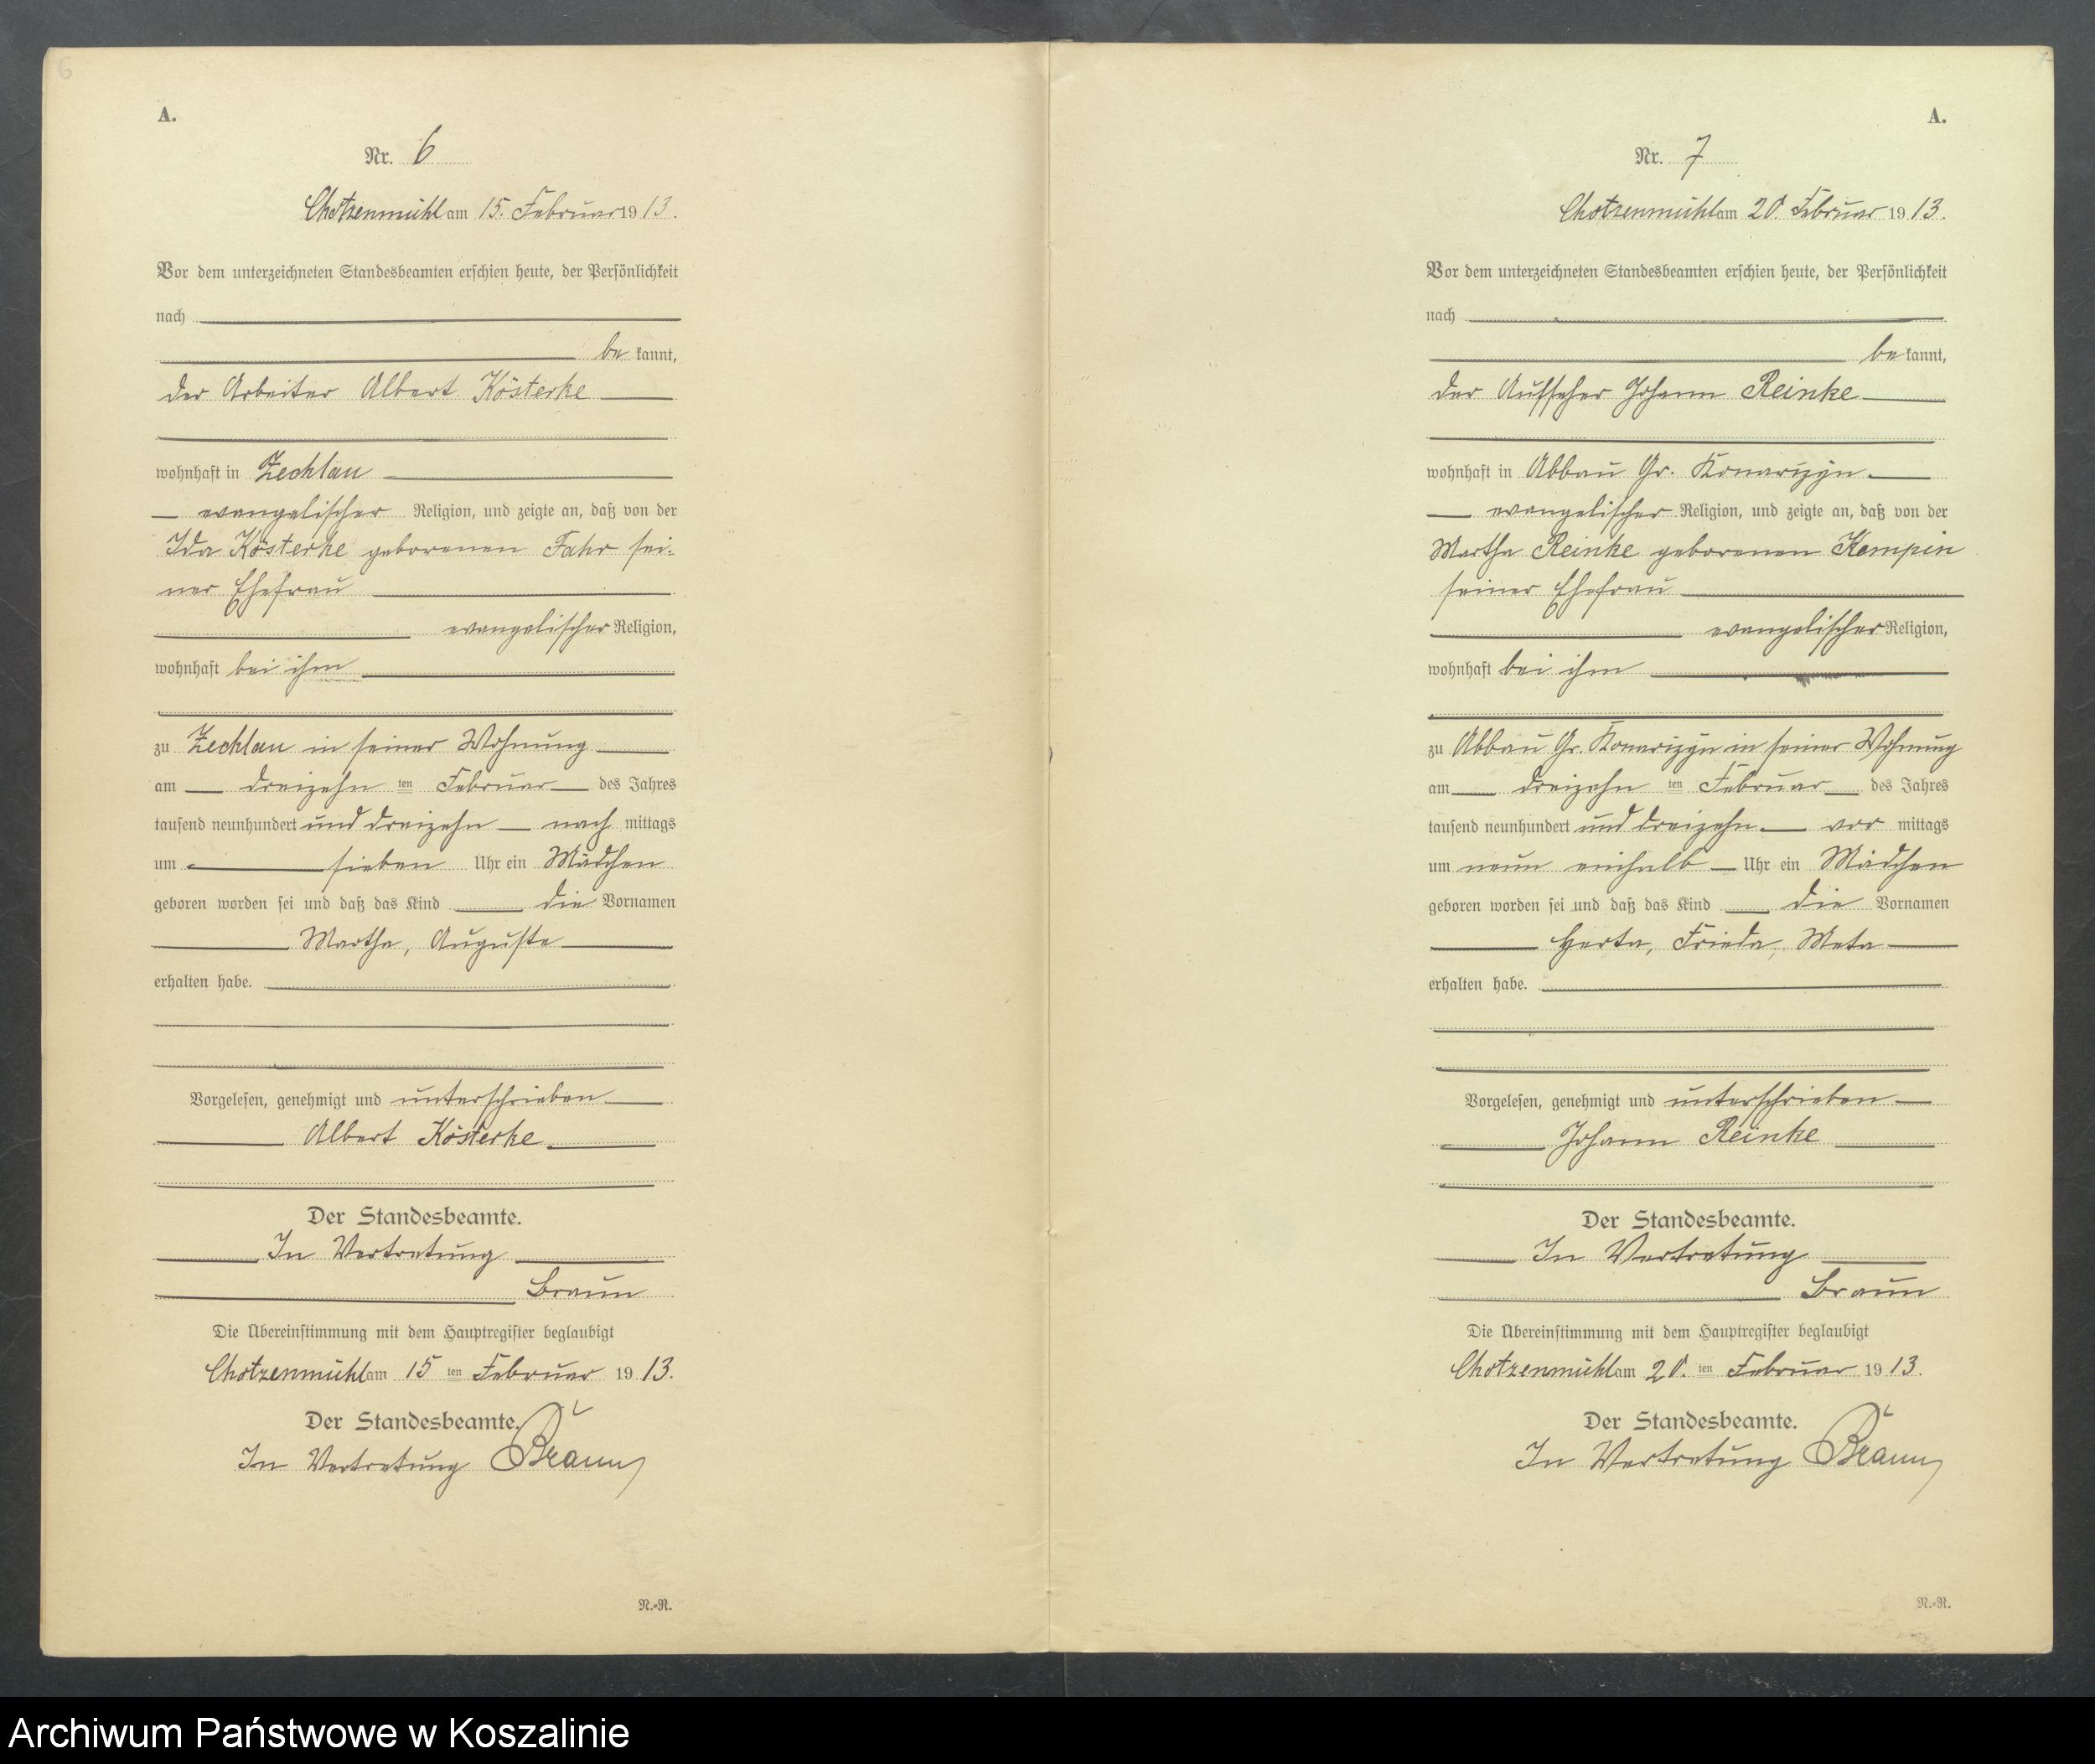 6
A.
Nr. 6
Chotzenmühl am 15. Februar 1913.
Vor dem unterzeichneten Standesbeamten erschien heute, der Persönlichkeit
nach
be kannt,
der Arbeiter Albert Kösterke
wohnhaft in Zechlau
evangelischer Religion, und zeigte an, daß von der
Ida Kösterke geborenen Fahr sei-
ner Ehefrau
evangelischer Religion,
wohnhaft bei ihm
zu Zechlau in seiner Wohnung
am dreizehn ten Februar des Jahres
tausend neunhundert und dreizehn nach mittags
um sieben Uhr ein Mädchen
geboren worden sei und daß das Kind die Vornamen
Martha, Auguste
erhalten habe.
Vorgelesen, genehmigt und unterschrieben
Albert Kösterke
Der Standesbeamte.
In Vertretung
Braun
Die Übereinstimmung mit dem Hauptregister beglaubigt
Chotzenmühl am 15 ten Februar 1913.
Der Standesbeamte.
In Vertretung Braun
N.-R.
A.
Nr. 7
Chotzenmühl am 20 Februar 1913.
Vor dem unterzeichneten Standesbeamten erschien heute, der Persönlichkeit
nach
be kannt,
der Aufseher Johann Reinke
wohnhaft in Abbau Gr. Konarizyn
evangelischer Religion, und zeigte an, daß von der
Martha Reinke geborenen Kempin
seiner Ehefrau
evangelischer Religion,
wohnhaft bei ihm
zu Abbau Gr. Konarizyn in seiner Wohnung
am dreizehn ten Februar des Jahres
tausend neunhundert und dreizehn vor mittags
um neun einhalb Uhr ein Mädchen
geboren worden sei und daß das Kind die Vornamen
Herta, Frieda, Meta
erhalten habe.
Vorgelesen, genehmigt und unterschrieben
Johann Reinke
Der Standesbeamte.
In Vertretung
Braun
Die Übereinstimmung mit dem Hauptregister beglaubigt
Chotzenmühl am 20. ten Februar 1913.
Der Standesbeamte.
In Vertretung Braun
N.-R.
Archiwum Państwowe w Koszalinie